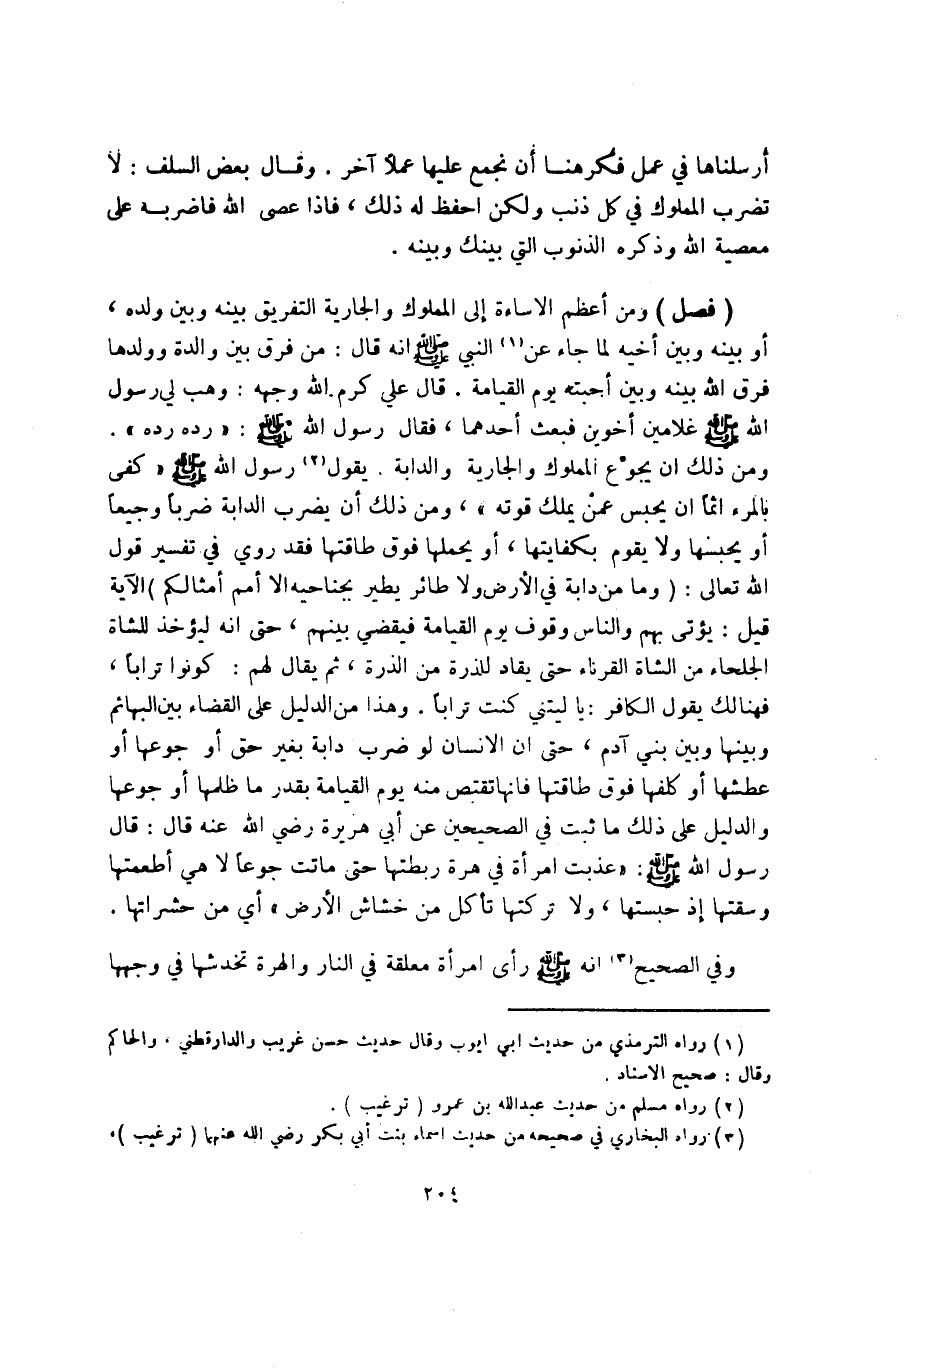 أرسلناها في عمل فكرهنا أن نجمع عليها عملاً آخر . وقال بعض السلف : لا
تضرب المملوك في كل ذنب ولكن احفظ له ذلك ، فاذا عصى الله فاضربه على
معصية الله وذكره الذنوب التي بينك وبينه .
( فصل ) ومن أعظم الاساءة إلى المملوك والجارية التفريق بينه وبين ولده ،
أو بينه وبين أخيه لما جاء عن(١) النبي ﷺ انه قال : من فرق بين والدة وولدها
فرق الله بينه وبين أحبته يوم القيامة . قال علي كرم الله وجهه : وهب لي رسول
الله ﷺ غلامين أخوين فبعث أحدهما ، فقال رسول الله ﷺ : « رده رده » .
ومن ذلك ان يجوع المملوك والجارية والدابة . يقول(٢) رسول الله ﷺ « كفى
بالمرء اثماً ان يحبس عمن يملك قوته » ، ومن ذلك أن يضرب الدابة ضرباً وجيعاً
أو يحبسها ولا يقوم بكفايتها ، أو يحملها فوق طاقتها فقد روي في تفسير قول
الله تعالى : ( وما من دابة في الأرض ولا طائر يطير بجناحيه الا أمم أمثالكم ) الآية
قيل : يؤتى بهم والناس وقوف يوم القيامة فيقضي بينهم ، حتى انه ليؤخذ للشاة
الجلحاء من الشاة القرناء حتى يقاد للذرة من الذرة ، ثم يقال لهم : كونوا تراباً ،
فهنالك يقول الكافر : يا ليتني كنت تراباً . وهذا من الدليل على القضاء بين البهائم
وبينها وبين بني آدم ، حتى ان الانسان لو ضرب دابة بغير حق أو جوعها أو
عطشها أو كلفها فوق طاقتها فانها تقتص منه يوم القيامة بقدر ما ظلمها أو جوعها
والدليل على ذلك ما ثبت في الصحيحين عن أبي هريرة رضي الله عنه قال : قال
رسول الله ﷺ : « عذبت امرأة في هرة ربطتها حتى ماتت جوعاً لا هي أطعمتها
وسقتها إذ حبستها ، ولا تركتها تأكل من خشاش الأرض » أي من حشراتها .
وفي الصحيح(٣) انه ﷺ رأى امرأة معلقة في النار والهرة تخدشها في وجهها
(١) رواه الترمذي من حديث ابي ايوب وقال حديث حسن غريب والدارقطني ، والحاكم
وقال : صحيح الاسناد .
(٢) رواه مسلم من حديث عبدالله بن عمرو ( ترغيب ) .
(٣) رواه البخاري في صحيحه من حديث اسماء بنت أبي بكر رضي الله عنها ( ترغيب ) .
٢٠٤